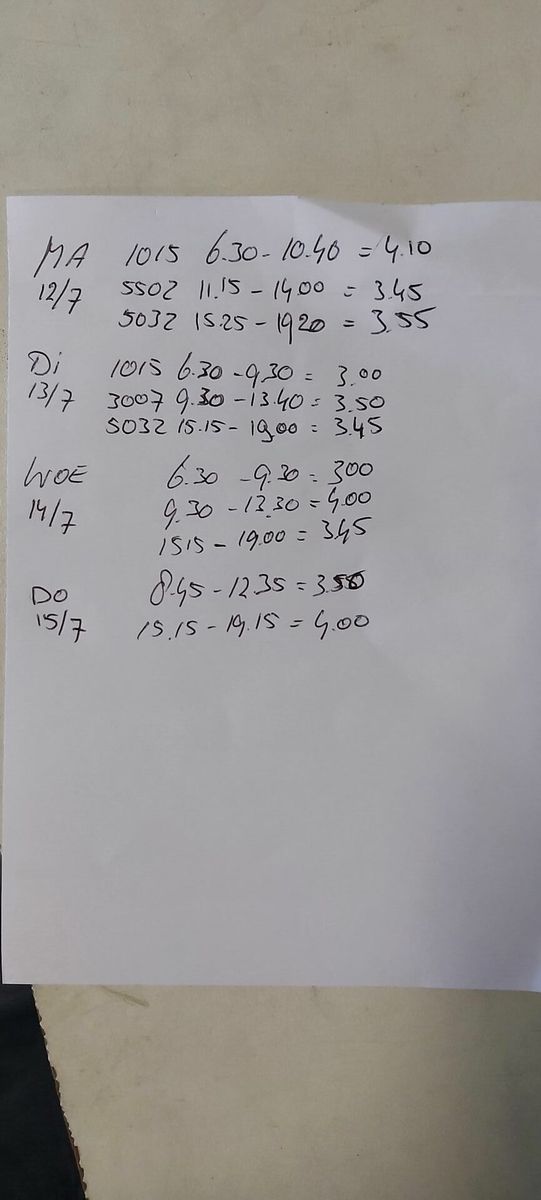 MA 1015 6.30 - 10.40 = 4.10
12/7 5502 11.15 - 14.00 = 3.45
5032 15.25 - 1920 = 3.55
Di 1015 6.30 - 9.30 = 3.00
13/7 3007 9.30 - 13.40 = 3.50
5032 15.15 - 19.00 = 3.45
WOE 6.30 - 9.30 = 300
14/7 9.30 - 13.30 = 4.00
1515 - 19.00 = 3.45
DO 8.45 - 12.35 = 3.50
15/7 15.15 - 19.15 = 4.00